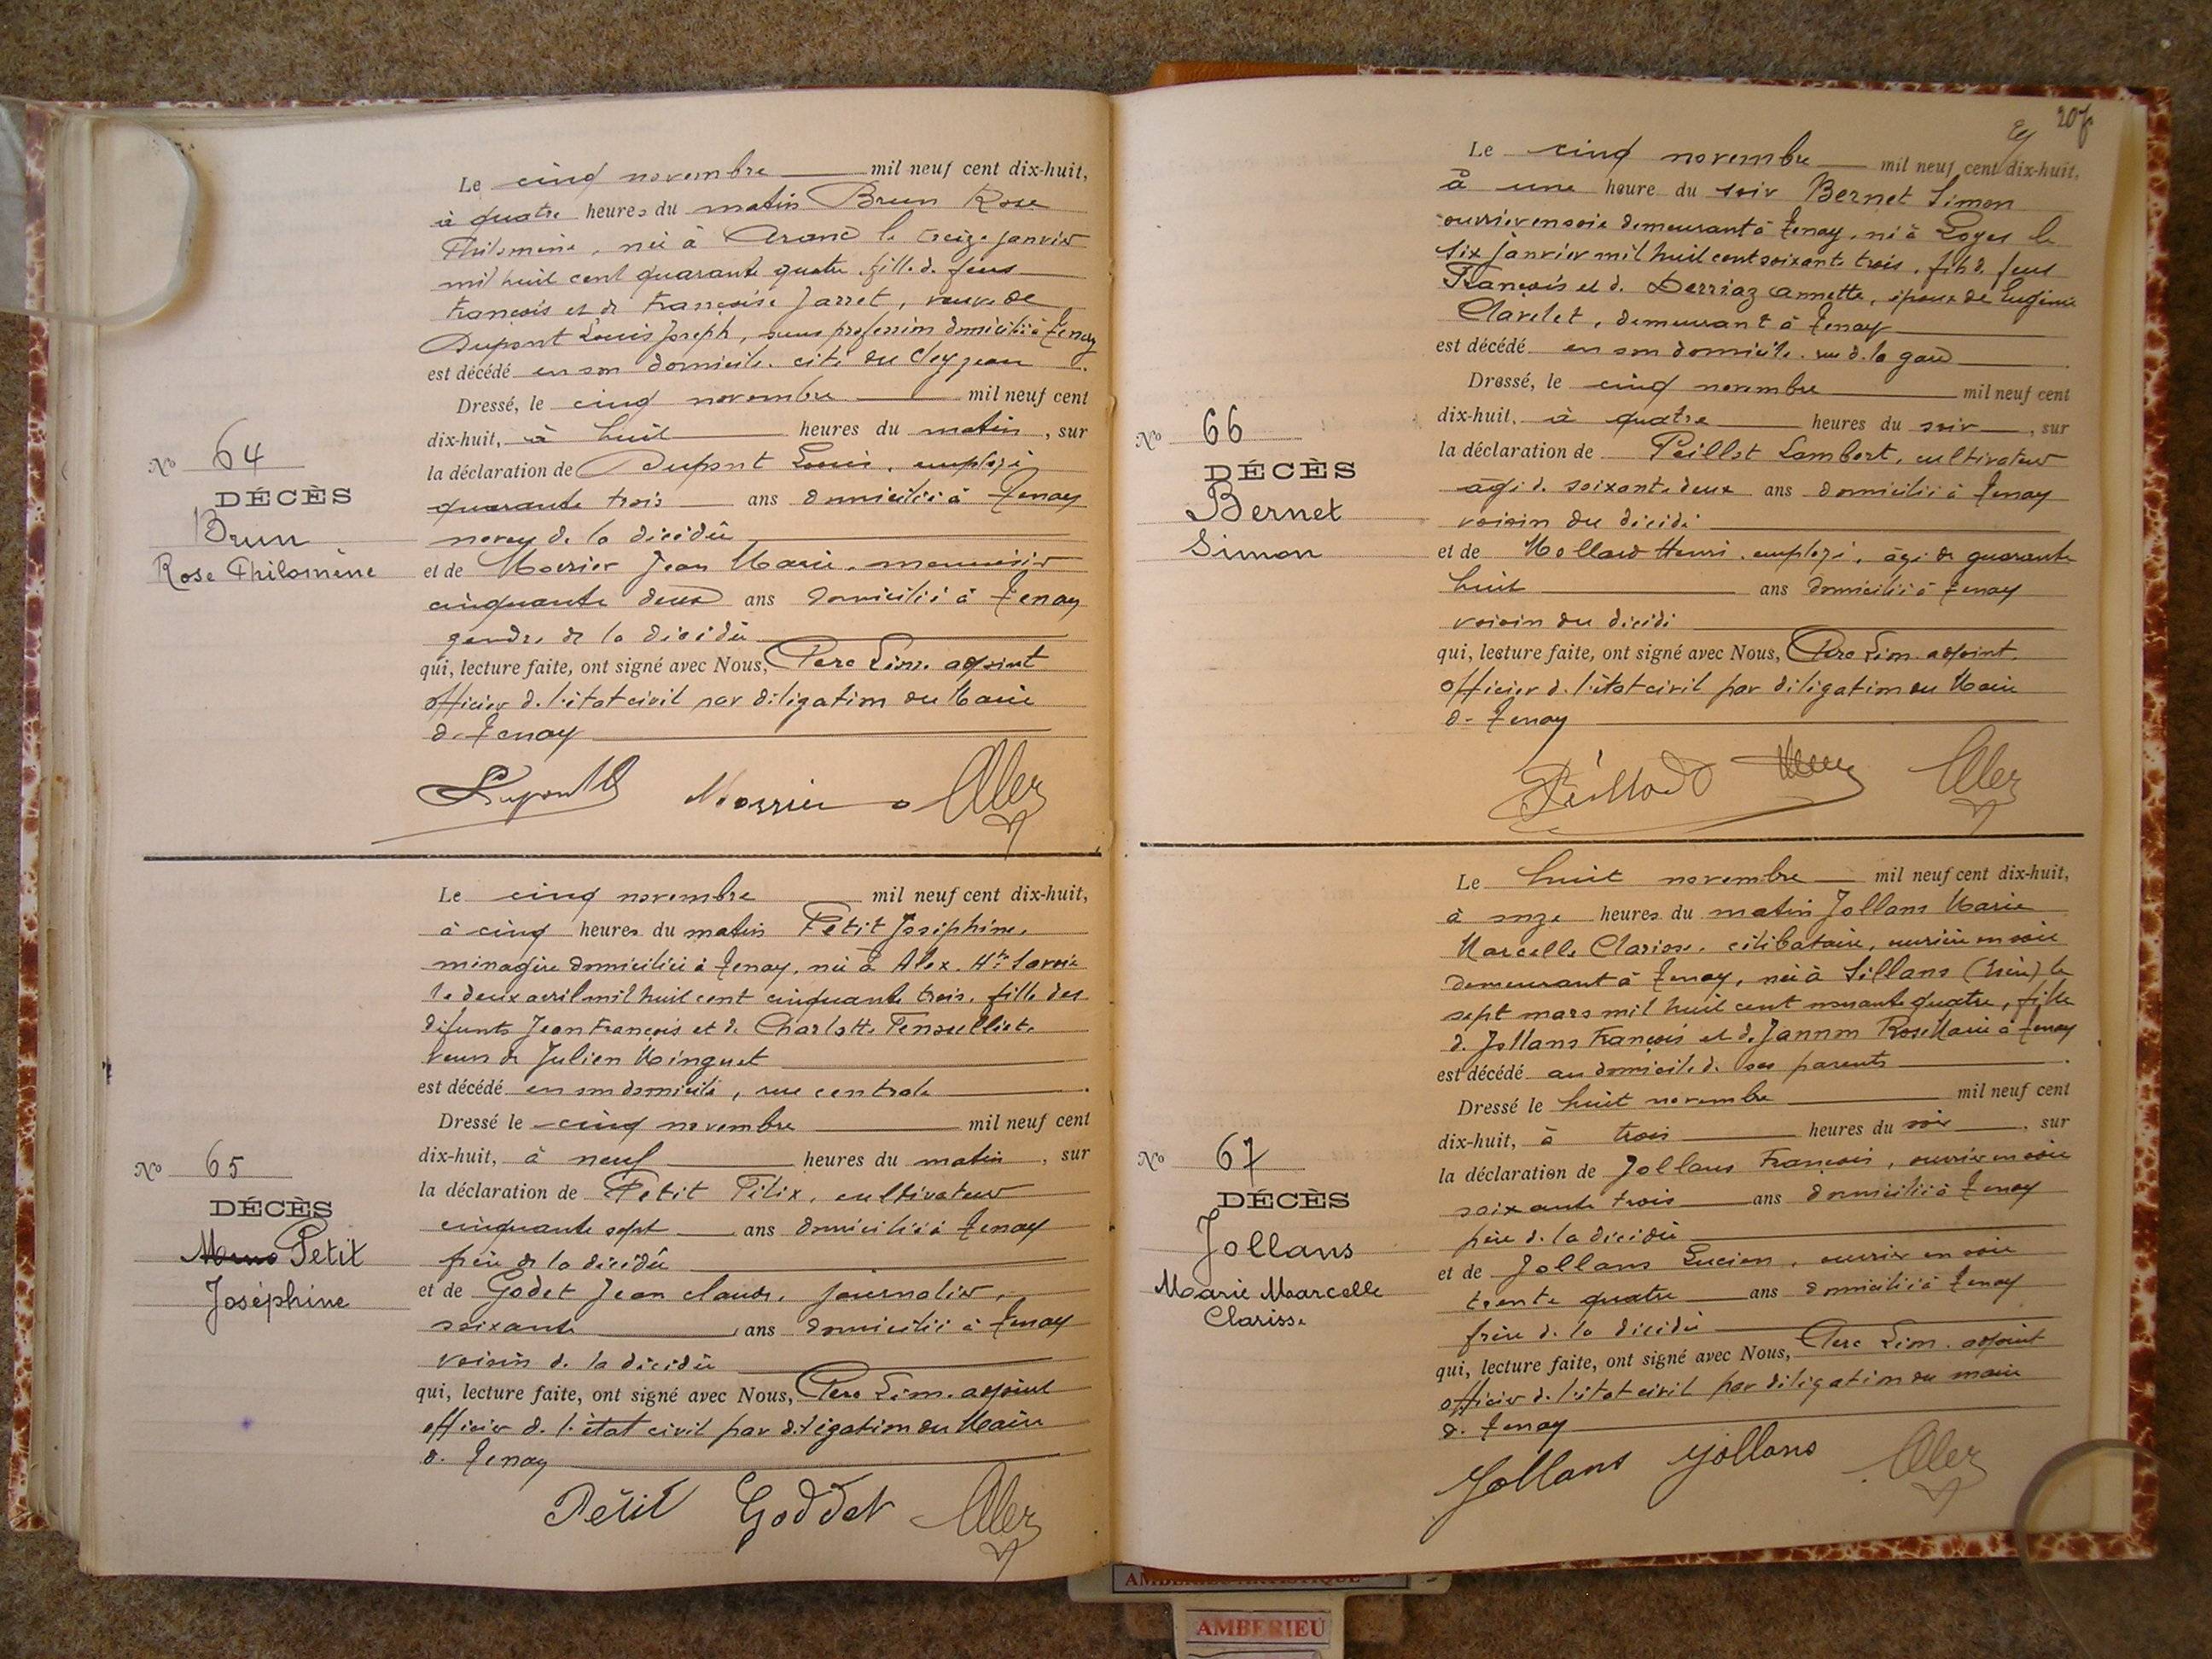 Le cinq novembre mil neuf cent dix-huit,
à quatre heures du matin Brun Rose
Philomène, née à Aranc le treize janvier
mil huit cent quarante quatre, fille de feus
François et de Françoise Jarret, veuve de
Dupont Louis Joseph, sans profession domiciliée à Tenay
est décédé en son domicile, cité du Cleyzieu
Dressé, le cinq novembre mil neuf cent
dix-huit, à huit heures du matin, sur
la déclaration de Dupont Louis, employé
quarante trois ans domicilié à Tenay
neveu de la décédée
et de Morrier Jean Marie, menuisier
cinquante deux ans domicilié à Tenay
gendre de la décédée
qui, lecture faite, ont signé avec Nous, adjoint
officier de l'état civil par délégation du Maire
de Tenay
No 64
DÉCÈS
Brun
Rose Philomène
Dupont Morrier
Le cinq novembre mil neuf cent dix-huit,
à cinq heures du matin Petit Joséphine,
ménagère domiciliée à Tenay, née à Alex. Hte Savoie
le deux avril mil huit cent cinquante trois, fille des
défunts Jean François et de Charlotte
veuve de Julien Minguet
est décédé en son domicile, rue centrale
Dressé le cinq novembre mil neuf cent
dix-huit, à neuf heures du matin, sur
la déclaration de Petit Félix, cultivateur
cinquante sept ans domicilié à Tenay
frère de la décédée
et de Godet Jean claude, journalier,
soixante ans domicilié à Tenay
voisin de la décédée
qui, lecture faite, ont signé avec Nous, adjoint
officier de l'état civil par délégation du Maire
de Tenay
No 65
DÉCÈS
Petit
Joséphine
Pétit Goddet
207
Le cinq novembre mil neuf cent dix-huit,
à une heure du soir Bernet Simon
ouvrier en soie demeurant à Tenay, né à Loyes le
six janvier mil huit cent soixante trois, fils de feus
François et de Derriaz Annette, époux de Eugénie
Clavelet, demeurant à Tenay
est décédé en son domicile rue de la gare
Dressé, le cinq novembre mil neuf cent
dix-huit, à quatre heures du soir, sur
la déclaration de Peillot Lambert, cultivateur
âgé de soixante deux ans domicilié à Tenay
voisin du décédé
et de Mollard Henri, employé, âgé de quarante
huit ans domicilié à Tenay
voisin du décédé
qui, lecture faite, ont signé avec Nous, adjoint,
officier de l'état civil par délégation du Maire
de Tenay
No 66
DÉCÈS
Bernet
Simon
Le huit novembre mil neuf cent dix-huit,
à onze heures du matin Jollans Marie
Marcelle Clarisse, célibataire, ouvrière en soie
demeurant à Tenay, née à Sillans (Isère) le
sept mars mil huit cent nonante quatre, fille
de Jollans François et de Jannon Rose Marie à Tenay
est décédé au domicile de ses parents
Dressé le huit novembre mil neuf cent
dix-huit, à trois heures du soir, sur
la déclaration de Jollans François, ouvrier en soie
soixante trois ans domicilié à Tenay
père de la décédée
et de Jollans Lucien, ouvrier en soie
trente quatre ans domicilié à Tenay
frère de la décédée
qui, lecture faite, ont signé avec Nous, adjoint
officier de l'état civil par délégation du maire
de Tenay
No 67
DÉCÈS
Jollans
Marie Marcelle
Clarisse
Jollans Jollans
AMBERIEU